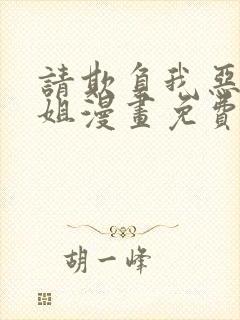 請欺負我惡
姐漫畫免費
胡一峰